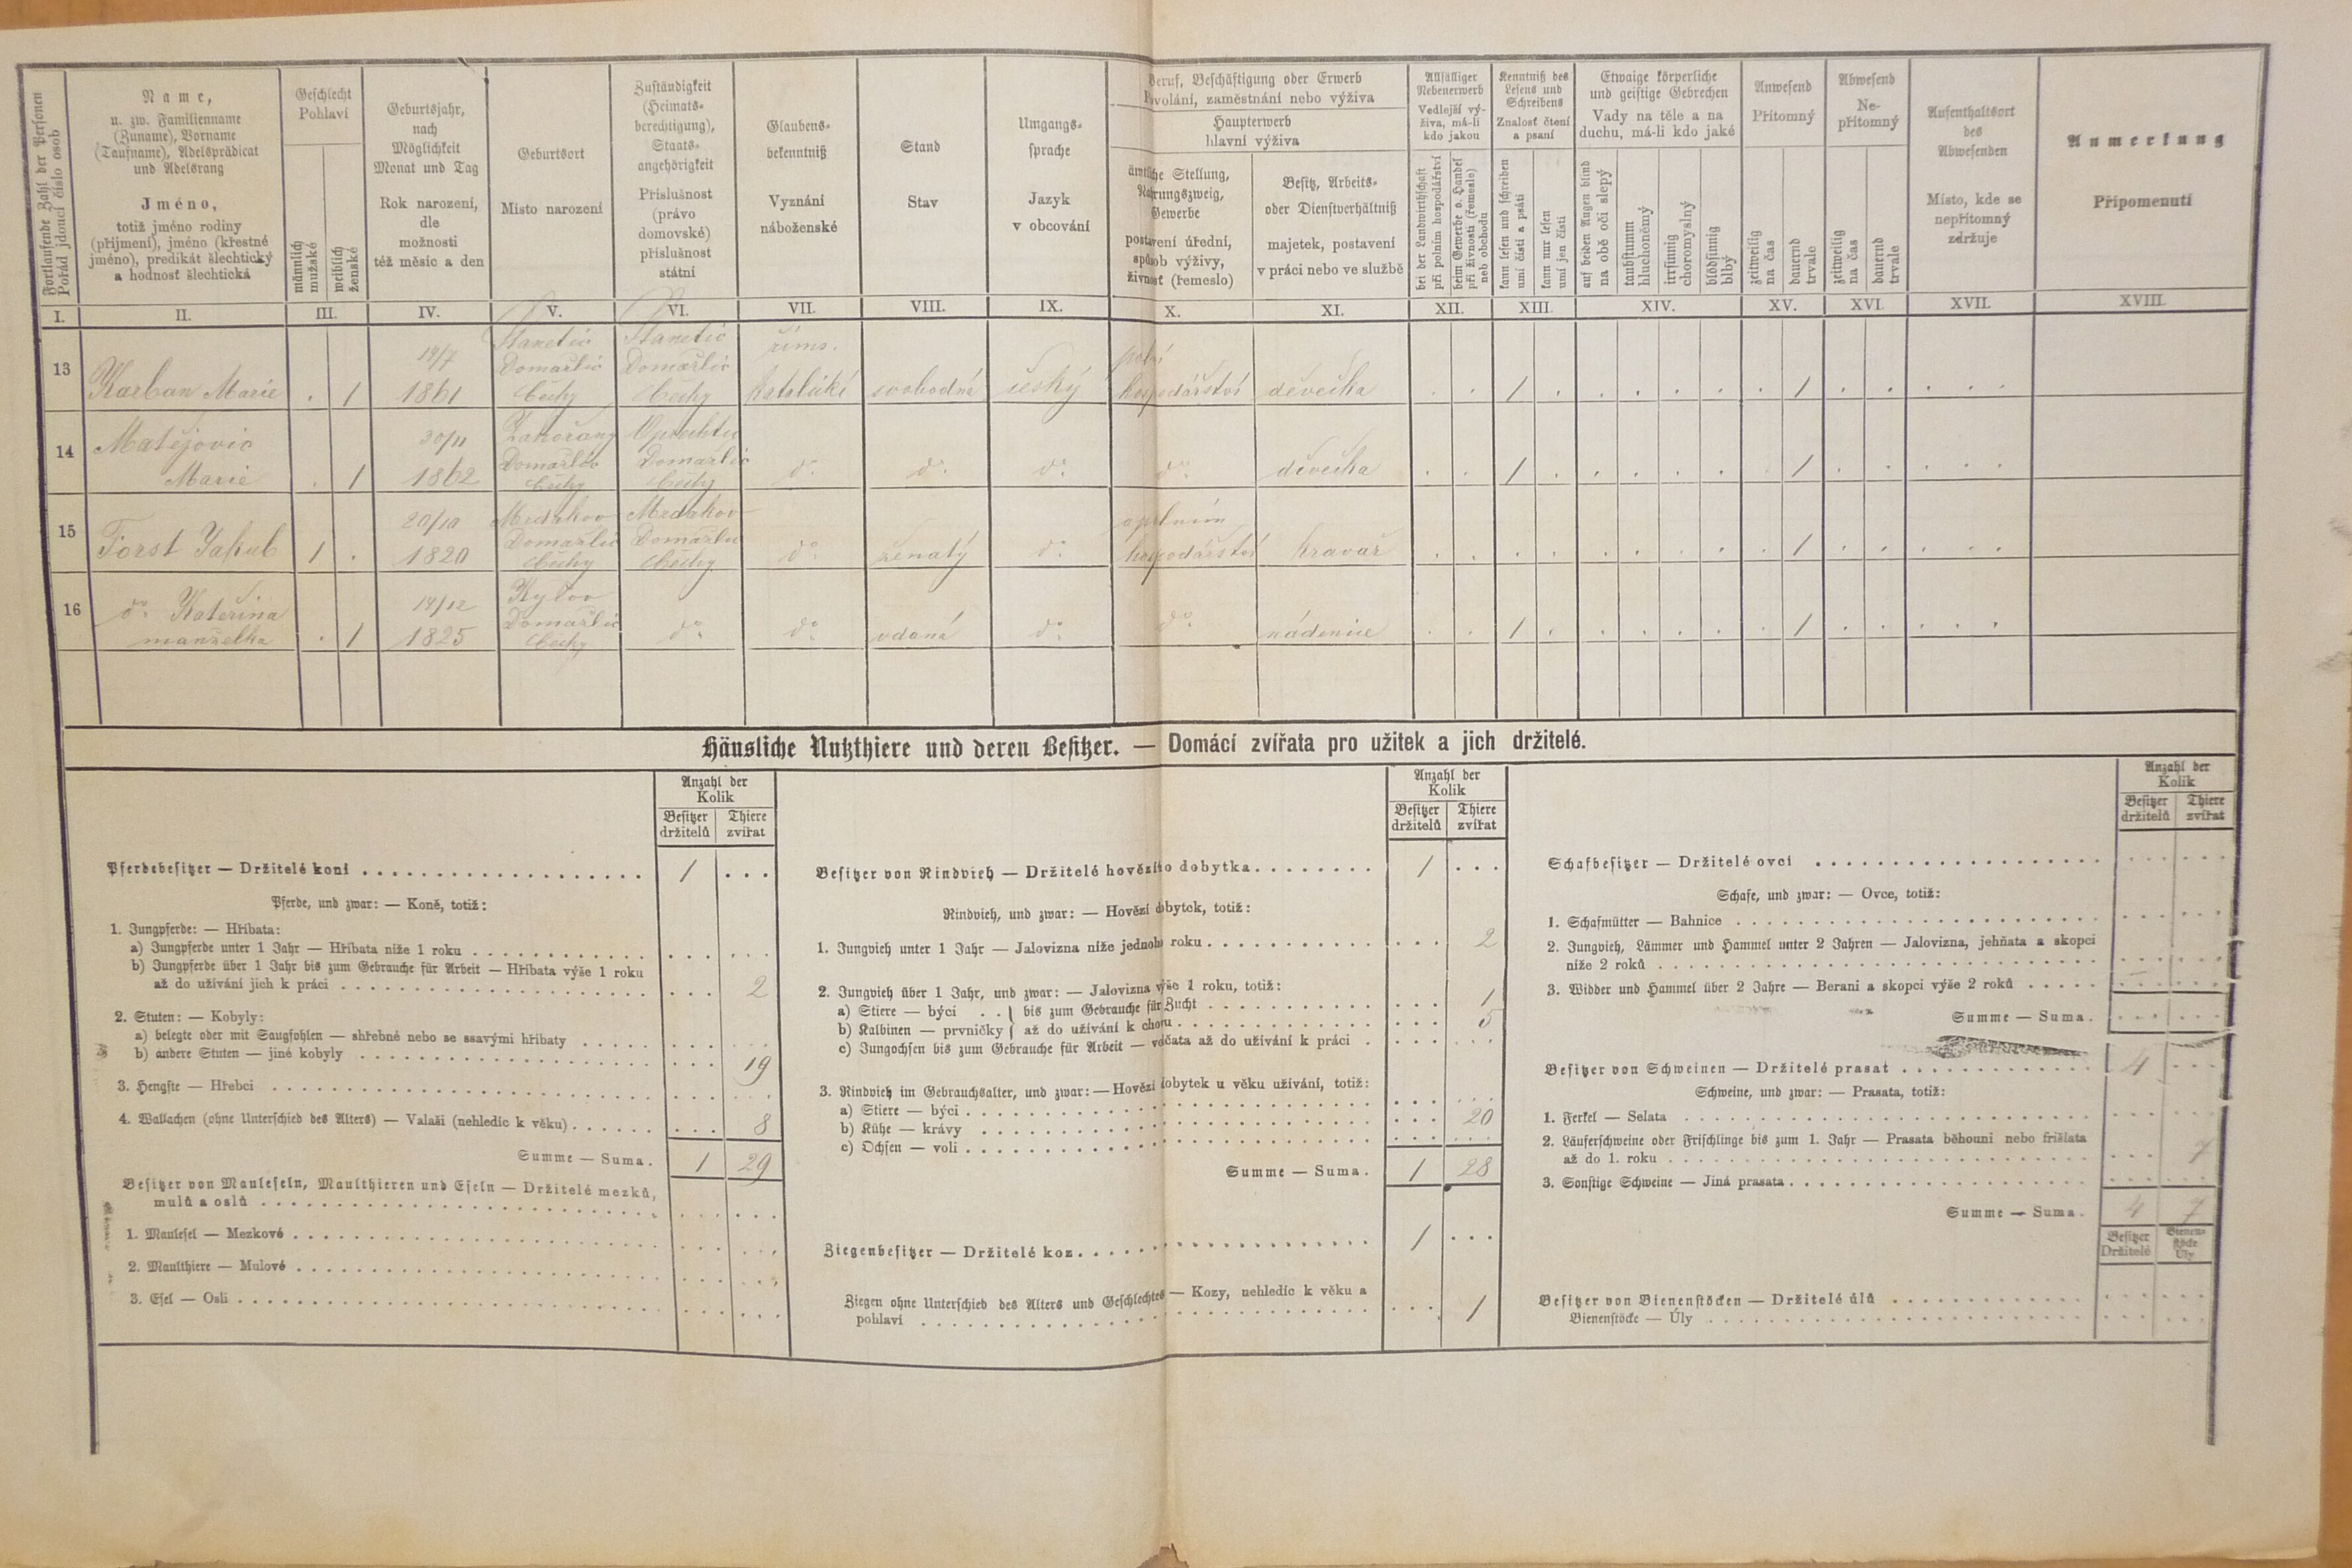 Fortlaufende Zahl der Personen
Pořád jdoucí číslo osob
Name,
u. zw. Familienname
(Zuname), Vorname
(Taufname), Adelsprädicat
und Adelsrang
Jméno,
totiž jméno rodiny
(příjmení), jméno (křestné
jméno), predikát šlechtický
a hodnost šlechtická
Geschlecht
Pohlaví
männlich
mužské
weiblich
ženské
Geburtsjahr,
nach
Möglichkeit
Monat und Tag
Rok narození,
dle
možnosti
též měsíc a den
Geburtsort
Místo narození
Zuständigkeit
(Heimats-
berechtigung),
Staats-
angehörigkeit
Příslušnost
(právo
domovské)
příslušnost
státní
Glaubens-
bekenntniß
Vyznání
náboženské
Stand
Stav
Umgangs-
sprache
Jazyk
v obcování
Beruf, Beschäftigung oder Erwerb
Povolání, zaměstnání nebo výživa
Haupterwerb
hlavní výživa
ämtliche Stellung,
Nahrungszweig,
Gewerbe
postavení úřední,
způsob výživy,
živnost (řemeslo)
Besitz, Arbeits-
oder Dienstverhältniß
majetek, postavení
v práci nebo ve službě
Allfälliger
Nebenerwerb
Vedlejší vý-
živa, má-li
kdo jakou
bei der Landwirthschaft
při polním hospodářství
beim Gewerbe o. Handel
při živnosti (řemeslo)
neb obchodu
Kenntniß des
Lesens und
Schreibens
Znalosť čtení
a psaní
kann lesen und schreiben
umí čísti a psáti
kann nur lesen
umí jen čísti
Etwaige körperliche
und geistige Gebrechen
Vady na těle a na
duchu, má-li kdo jaké
auf beiden Augen blind
na obě oči slepý
taubstumm
hluchoněmý
irrsinnig
choromyslný
blödsinnig
blbý
Anwesend
Přítomný
zeitweilig
na čas
dauernd
trvale
Abwesend
Ne-
přítomný
zeitweilig
na čas
dauernd
trvale
Aufenthaltsort
des
Abwesenden
Místo, kde se
nepřítomný
zdržuje
Anmerkung
Připomenutí
I. II. III. IV. V. VI. VII. VIII. IX. X. XI. XII. XIII. XIV. XV. XVI. XVII. XVIII.
Stanetic Stanetic říms. polní
19/7 Domažlic Domažlic
13 Karban Marie . 1 1861 Čechy Čechy katolické svobodná český hospodářství děvečka . . 1 . . . . . . 1 . . . . .
Matějovic 30/11 Zahořany
14 Domažlic Domažlic
Marie . 1 1862 Čechy Čechy dº dº dº dº děvečka . . 1 . . . . . . 1 . . . . .
20/10 Mrdakov Mrdakov
15 Domažlic Domažlic
Forst Jakub 1 . 1820 Čechy Čechy dº ženatý dº hospodářství kravař . . . . . . . . . 1 . . . . .
16 dº Kateřina 14/12 Kyčov
Domažlic
manželka . 1 1825 Čechy dº dº vdaná dº dº nádenice . . 1 . . . . . . 1 . . . . .
Häusliche Nutzthiere und deren Besitzer. — Domácí zvířata pro užitek a jich držitelé.
Anzahl der
Kolik
Besitzer Thiere
držitelů zvířat
Pferdebesitzer — Držitelé koní 1
Pferde, und zwar: — Koně, totiž:
1. Jungpferde: — Hříbata:
a) Jungpferde unter 1 Jahr — Hříbata níže 1 roku
b) Jungpferde über 1 Jahr bis zum Gebrauche für Arbeit — Hříbata výše 1 roku
až do užívání jich k práci 2
2. Stuten: — Kobyly:
a) belegte oder mit Saugfohlen — shřebné nebo se ssavými hříbaty
b) andere Stuten — jiné kobyly 19
3. Hengste — Hřebci
4. Wallachen (ohne Unterschied des Alters) — Valaši (nehledíc k věku) 8
Summe — Suma. 1 29
Besitzer von Mauleseln, Maulthieren und Eseln — Držitelé mezků,
mulů a oslů
1. Maulesel — Mezkové
2. Maulthiere — Mulové
3. Esel — Osli
Anzahl der
Kolik
Besitzer Thiere
držitelů zvířat
Besitzer von Rindvieh — Držitelé hovězího dobytka 1
Rindvieh, und zwar: — Hovězí dobytek, totiž:
1. Jungvieh unter 1 Jahr — Jalovizna níže jednoho roku 2
2. Jungvieh über 1 Jahr, und zwar: — Jalovizna výše 1 roku, totiž:
a) Stiere — býci . . } bis zum Gebrauche für Zucht 1
b) Kalbinen — prvničky } až do užívání k chovu 5
c) Jungochsen bis zum Gebrauche für Arbeit — volčata až do užívání k práci
3. Rindvieh im Gebrauchsalter, und zwar: — Hovězí dobytek u věku užívání, totiž:
a) Stiere — býci
b) Kühe — krávy 20
c) Ochsen — voli
Summe — Suma. 1 28
Ziegenbesitzer — Držitelé koz 1
Ziegen ohne Unterschied des Alters und Geschlechtes — Kozy, nehledíc k věku a
pohlaví 1
Anzahl der
Kolik
Besitzer Thiere
držitelů zvířat
Schafbesitzer — Držitelé ovcí
Schafe, und zwar: — Ovce, totiž:
1. Schafmütter — Bahnice
2. Jungvieh, Lämmer und Hammel unter 2 Jahren — Jalovizna, jehňata a skopci
níže 2 roků
3. Widder und Hammel über 2 Jahre — Berani a skopci výše 2 roků
Summe — Suma.
Besitzer von Schweinen — Držitelé prasat 4
Schweine, und zwar: — Prasata, totiž:
1. Ferkel — Selata
2. Läuferschweine oder Frischlinge bis zum 1. Jahr — Prasata běhouni nebo frišlata
až do 1. roku 7
3. Sonstige Schweine — Jiná prasata
Summe — Suma. 4 7
Besitzer Bienen-
stöcke
Držitelé Úly
Besitzer von Bienenstöcken — Držitelé úlů
Bienenstöcke — Úly